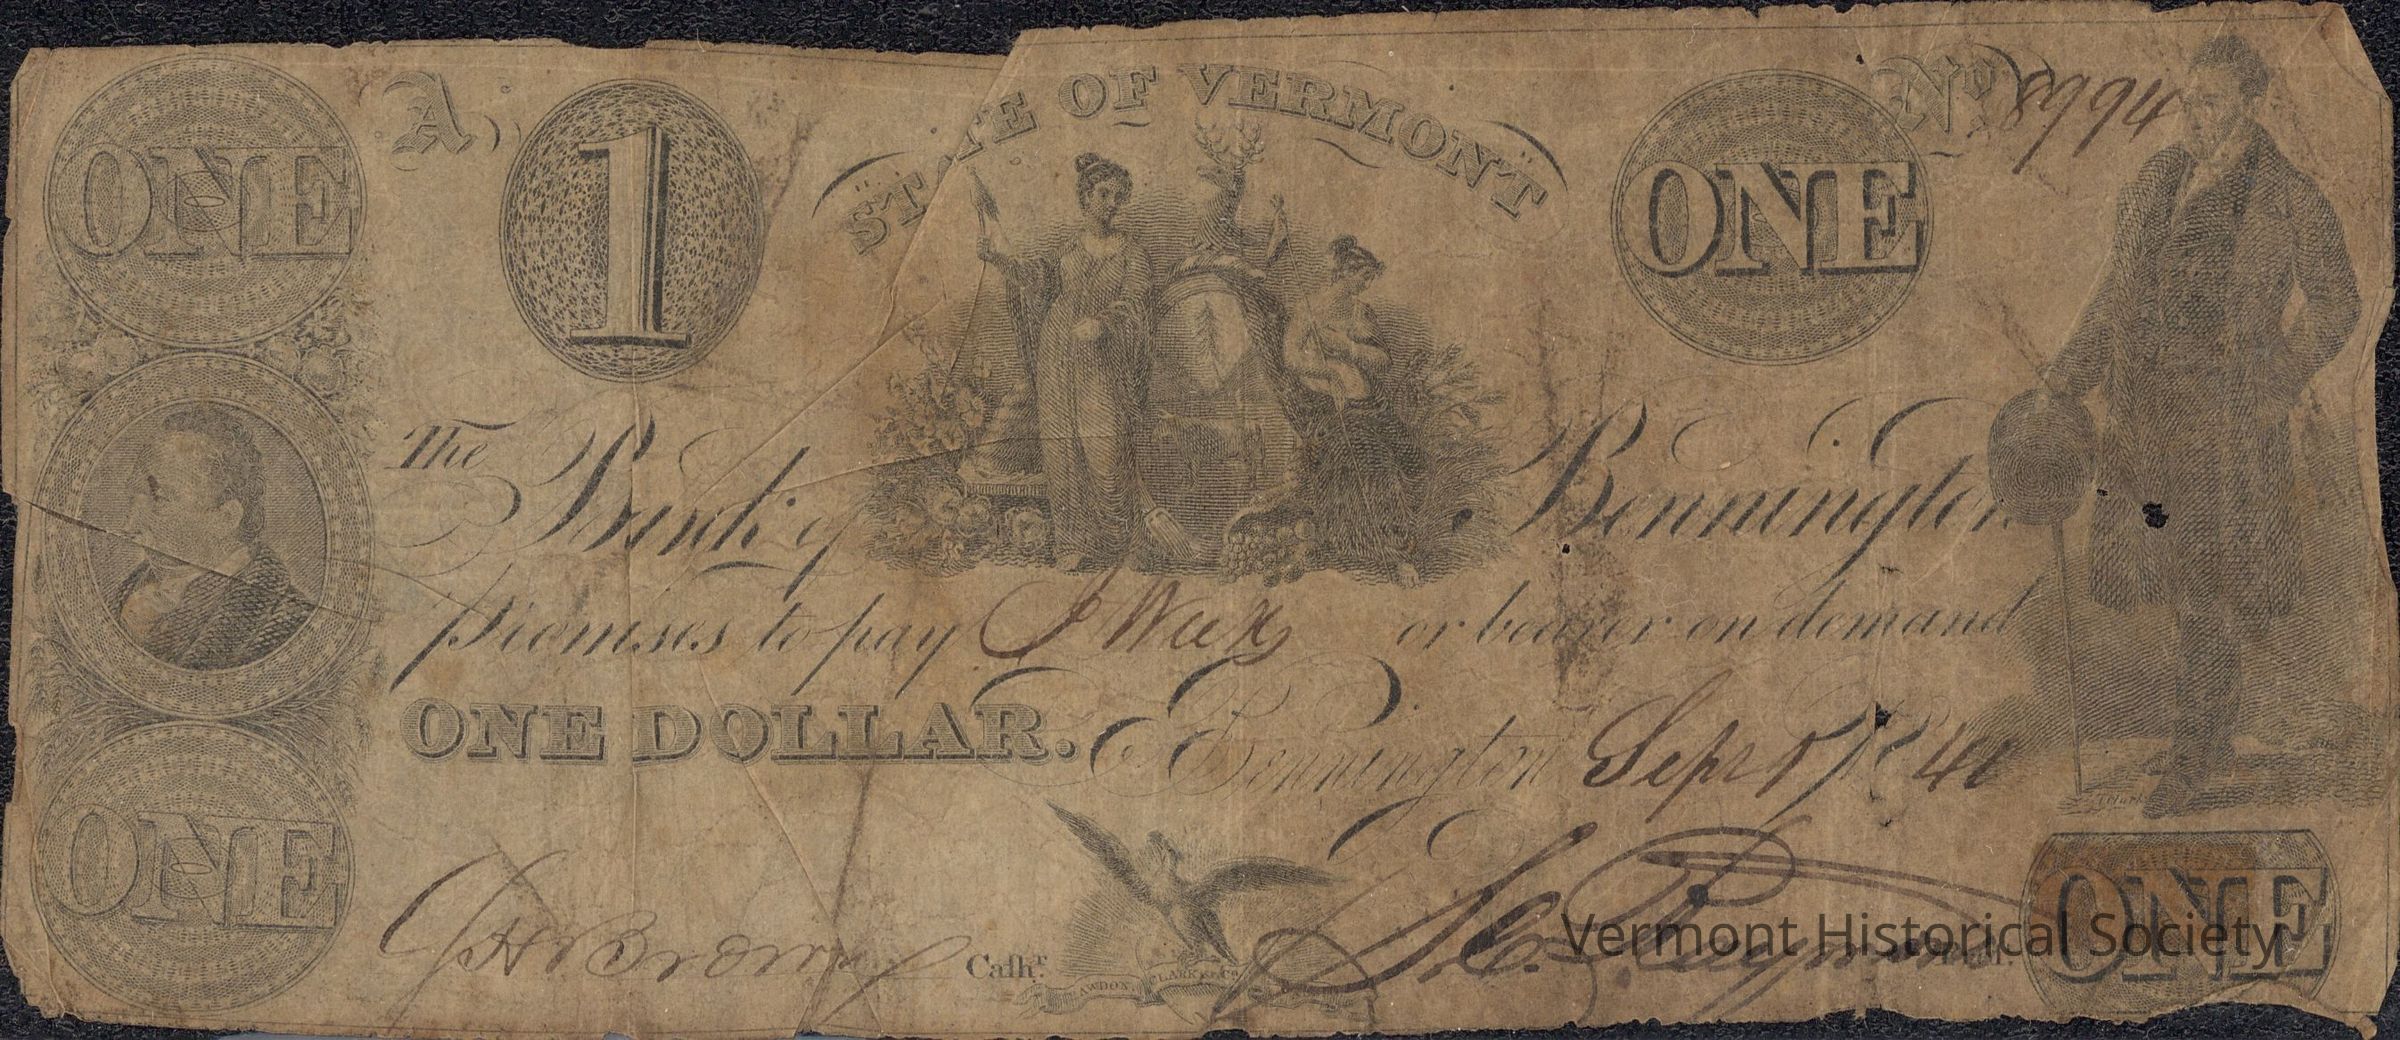 ONE
A
1
STATE OF VERMONT
ONE
No 8994
The Bank of Bennington
promises to pay J Weex or bearer on demand
ONE DOLLAR. Bennington Sept 1 1840
ONE
Cashr.
RAWDON, CLARK & Co.
Vermont Historical Society
ONE